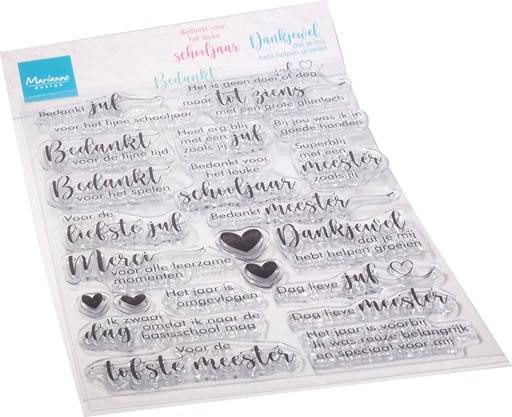 Marianne
design
Bedankt voor
het leuke
schooljaar
Dankjewel
dat je mij
hebt helpen groeien
Bedankt
juf
Bedankt juf
voor het fijne schooljaar
Het is geen doei of dag
maar tot ziens
met een grote glimlach
Bedankt
voor de fijne tijd
Heel erg blij
met een juf
zoals jij
Bij jou was ik in
goede handen
Bedankt
voor het spelen
Bedankt voor
het leuke
schooljaar
Superblij
met een
meester
zoals jij
Voor de
liefste juf
Bedankt meester
Dankjewel
dat je mij
hebt helpen groeien
Merci
voor alle leerzame
momenten
Het jaar is
omgevlogen
Dag lieve juf
Dag lieve meester
Ik zwaai
dag omdat ik naar de
basisschool mag
Het jaar is voorbij
Jij was reuze belangrijk
en speciaal voor mij
Voor de
tofste meester